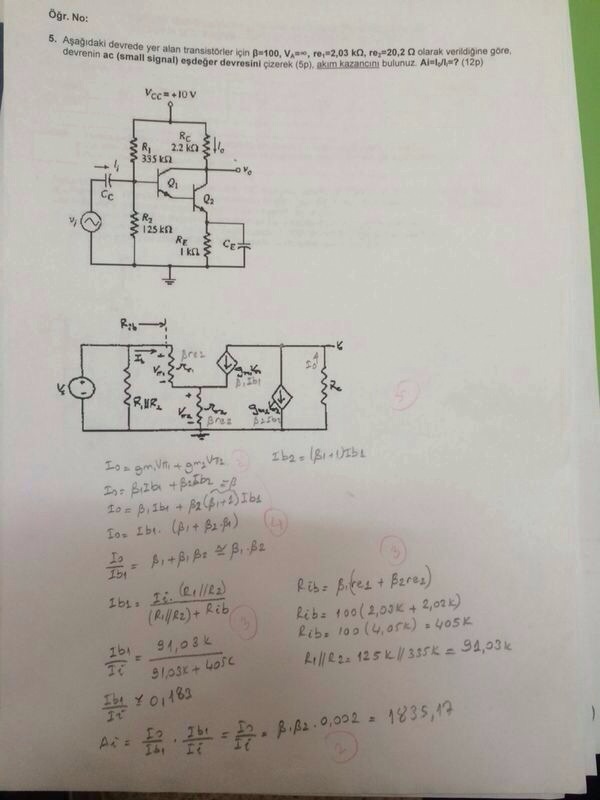 Öğr. No:
5. Aşağıdaki devrede yer alan transistörler için β=100, VA=∞, re₁=2,03 kΩ, re₂=20,2 Ω olarak verildiğine göre,
devrenin ac (small signal) eşdeğer devresini çizerek (5p), akım kazancını bulunuz. Ai=Io/Ii=? (12p)
VCC=+10V
RC
2.2 kΩ
Io
R1
335 kΩ
vo
Ii
Q1
CC
Q2
vi
R2
125 kΩ
RE
1 kΩ
CE
Rib
Ib
βre2
Vπ1
rπ1
gm1Vπ1
β1Ib1
Io
R1//R2
Vπ2
rπ2
βre2
gm2Vπ2
β2Ib2
Rc
5
Io = gm1Vπ1 + gm2Vπ2
2
Ib2 = (β1+1)Ib1
Io = β1Ib1 + β2Ib2
≅β
Io = β1Ib1 + β2(β1+1)Ib1
Io = Ib1. (β1 + β2.β1)
4
Io/Ib1 = β1 + β1β2 ≅ β1.β2
3
Rib = β1(re1 + β2re2)
Ib1 = Ii. (R1//R2) / (R1//R2) + Rib
3
Rib = 100(2,03k + 2,02k)
Rib = 100(4,05k) = 405k
Ib1/Ii = 91,03k / 91,03k + 405k
R1//R2 = 125k//335k = 91,03k
Ib1/Ii ≅ 0,183
Ai = Io/Ib1 . Ib1/Ii = Io/Ii = β1β2 . 0,002 = 1835,17
2